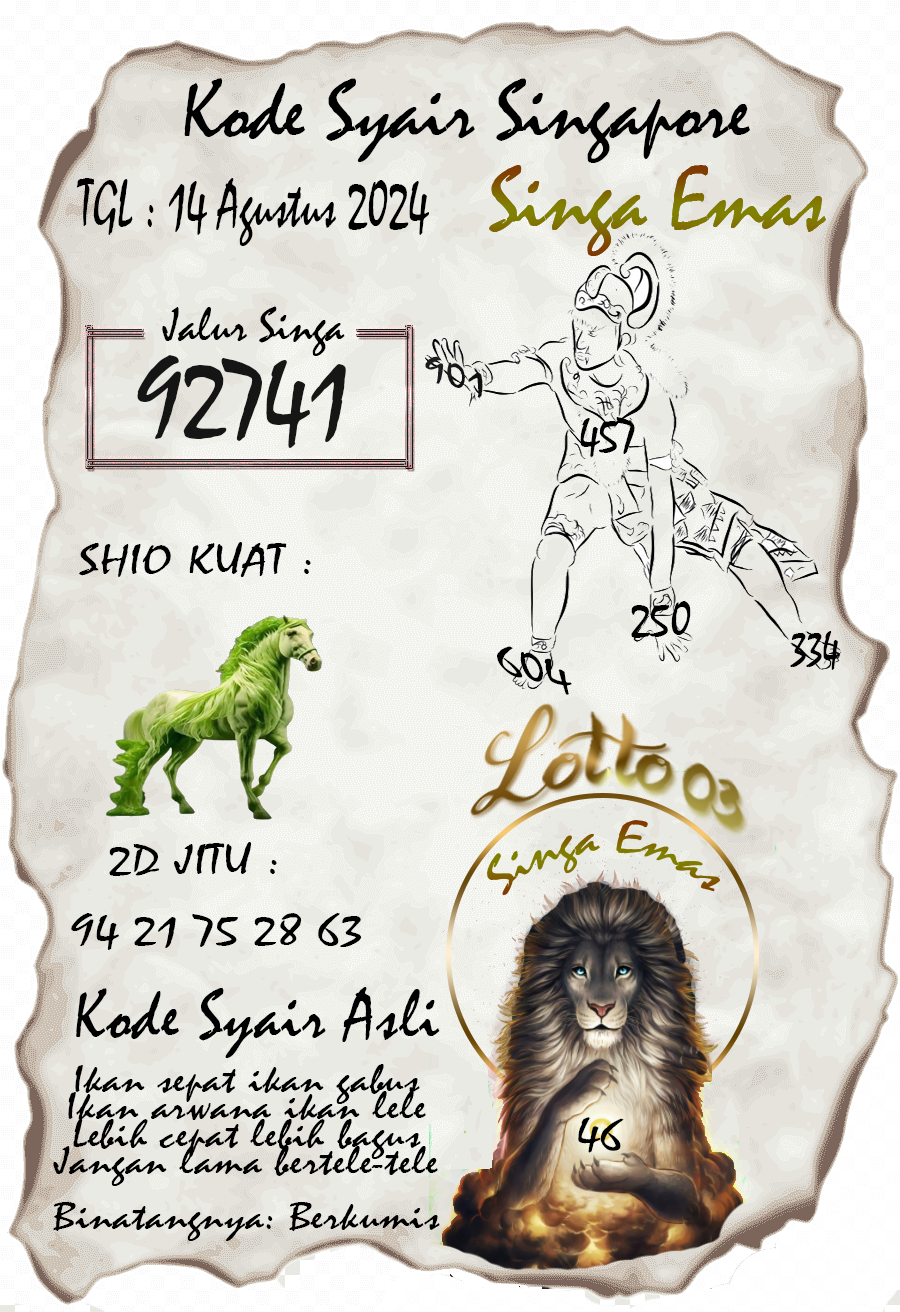 Kode Syair Singapore
TGL : 14 Agustus 2024
Singa Emas
Jalur Singa
92741
901
457
250
604
334
SHIO KUAT :
Lotto 03
Singa Emas
46
2D JITU :
94 21 75 28 63
Kode Syair Asli
Ikan sepat ikan gabus
Ikan arwana ikan lele
Lebih cepat lebih bagus
Jangan lama bertele-tele
Binatangnya: Berkumis